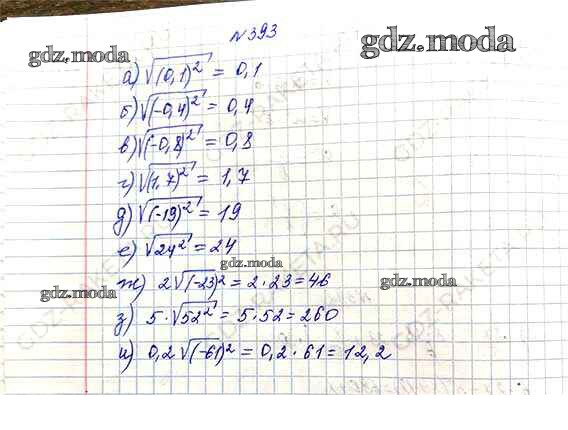 №393
gdz.moda
gdz.moda
а) √(0,1)² = 0,1
б) √(-0,4)² = 0,4
в) √(-0,8)² = 0,8
г) √(1,7)² = 1,7
д) √(-19)² = 19
е) √24² = 24
gdz.moda
ж) 2√(-23)² = 2·23 = 46
gdz.moda
gdz.moda
з) 5·√52² = 5·52 = 260
и) 0,2√(-61)² = 0,2·61 = 12,2
GDZ-RAKETA.RU